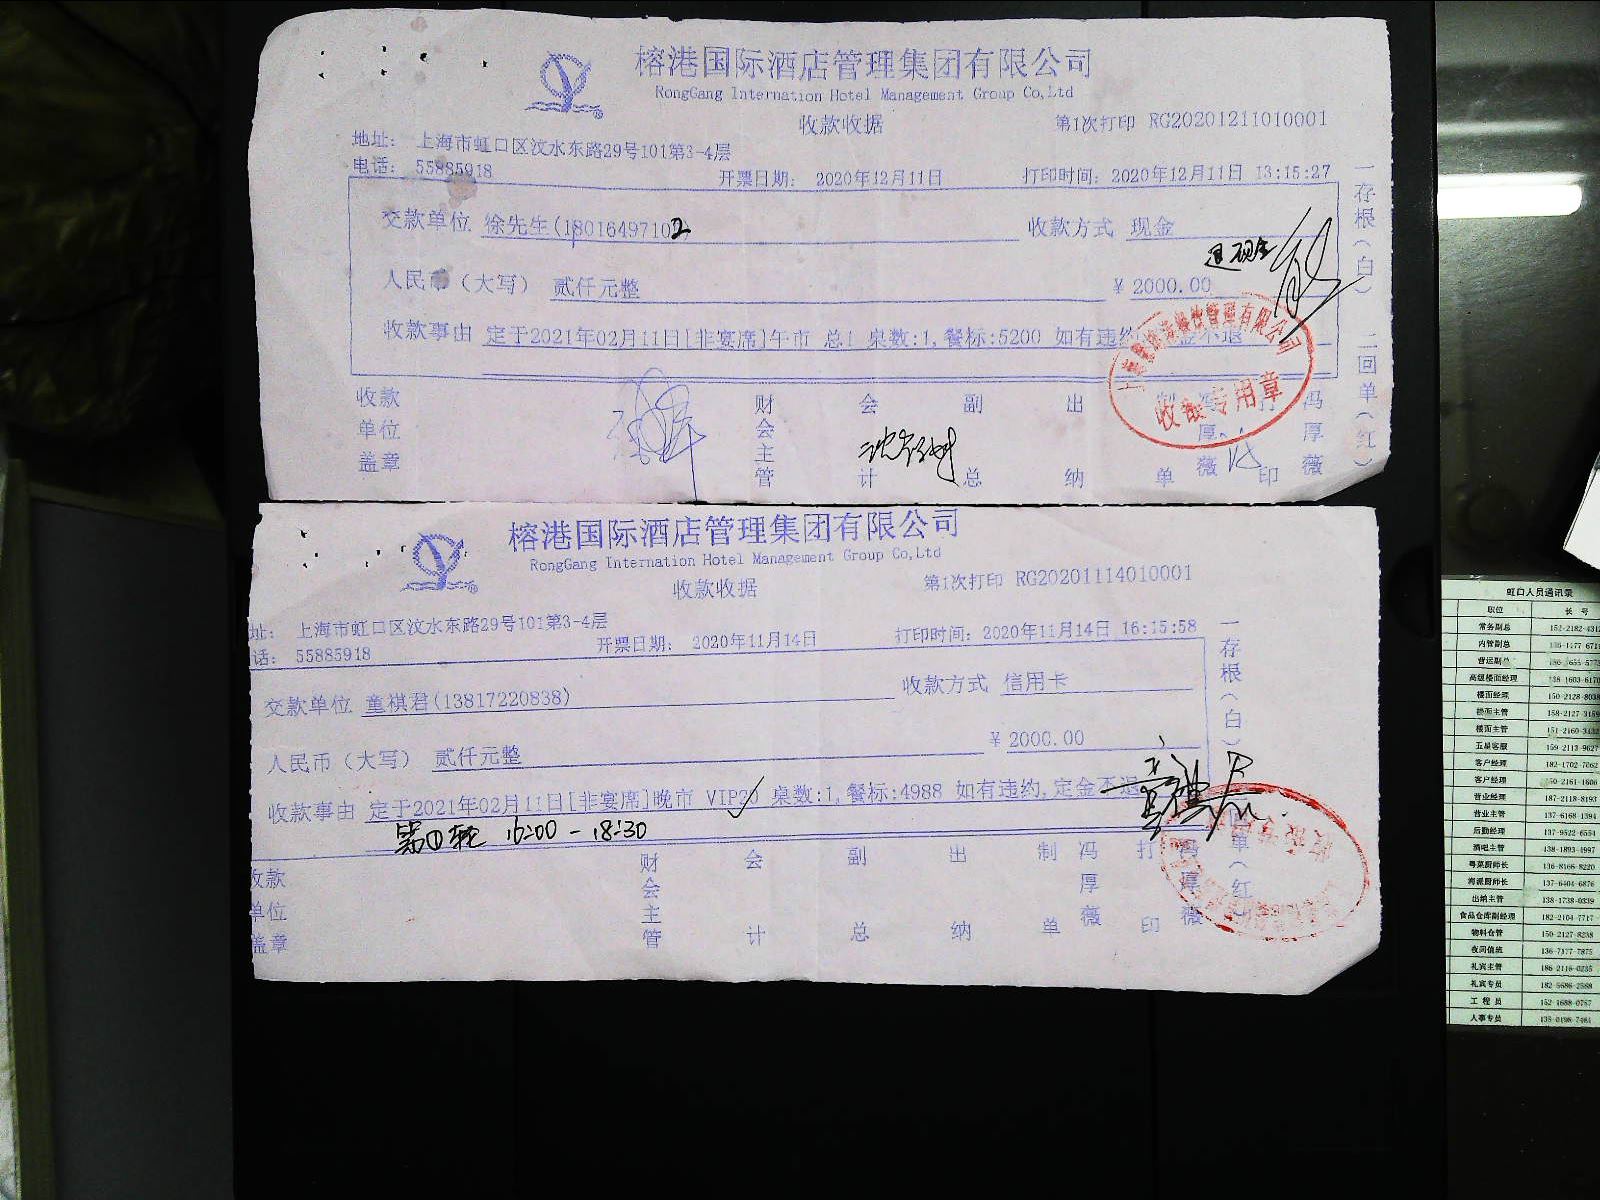 榕港国际酒店管理集团有限公司
RongGang Internation Hotel Management Group Co,Ltd
收款收据
第1次打印 RG20201211010001
地址: 上海市虹口区汶水东路29号101第3-4层
电话: 55885918
开票日期: 2020年12月11日
打印时间: 2020年12月11日 13:15:27
交款单位 徐先生(18016497102
收款方式 现金
退现金
人民币（大写） 贰仟元整
¥ 2000.00
收款事由 定于2021年02月11日[非宴席]午市 总1 桌数:1,餐标:5200 如有违约 金不退
收款单位盖章
财会主管
会计
副总
出纳
制单
冯厚薇
打印
冯厚薇
收银专用章
一存根（白） 二回单（红）
榕港国际酒店管理集团有限公司
RongGang Internation Hotel Management Group Co,Ltd
收款收据
第1次打印 RG20201114010001
址: 上海市虹口区汶水东路29号101第3-4层
话: 55885918
开票日期: 2020年11月14日
打印时间: 2020年11月14日 16:15:58
交款单位 童祺君(13817220838)
收款方式 信用卡
人民币（大写） 贰仟元整
¥ 2000.00
收款事由 定于2021年02月11日[非宴席]晚市 VIP20 桌数:1,餐标:4988 如有违约,定金不退
第①轮 16:00-18:30
童祺君
收款单位盖章
财会主管
会计
副总
出纳
制单
冯厚薇
打印
冯厚薇
一存根（白） 回单（红）
虹口人员通讯录
职位 长号
常务副总 152-2182-431
内管副总
营运副总
高级楼面经理 138-1603-6170
楼面经理 150-2128-8038
楼面主管 158-2127-3159
楼面主管 151-2160-3432
五星客服 159-2113-9627
客户经理 182-1702-7062
客户经理 150-2161-1606
营业经理 187-2118-8193
营业主管 137-6168-1394
后勤经理 137-9522-6554
酒吧主管 138-1893-4997
粤菜厨师长 136-8166-8220
海派厨师长 137-6404-6876
出纳主管 138-1738-0339
食品仓库副经理 182-2104-7717
物料仓管 150-2127-8238
夜间值班 136-7177-7875
礼宾主管 186-2116-0235
礼宾专员 182-5686-2588
工程员 152-1688-0757
人事专员